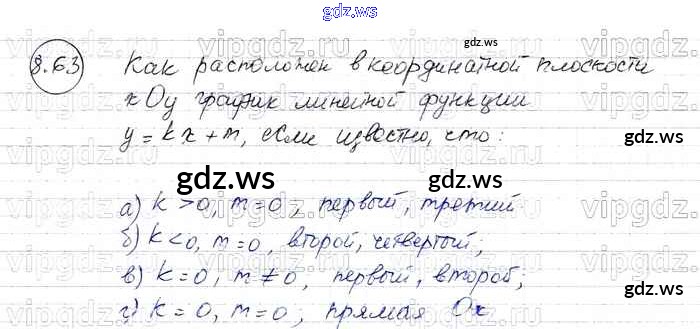 gdz.ws
8.63 Как расположен в координатной плоскости
xOy график линейной функции
y = kx + m, если известно, что:
gdz.ws
gdz.ws
gdz.ws
а) k > 0, m = 0; первый, третий.
б) k < 0, m = 0, второй, четвертый;
в) k = 0, m ≠ 0, первый, второй;
г) k = 0, m = 0; прямая Ox
gdz.ws
gdz.ws
gdz.ws